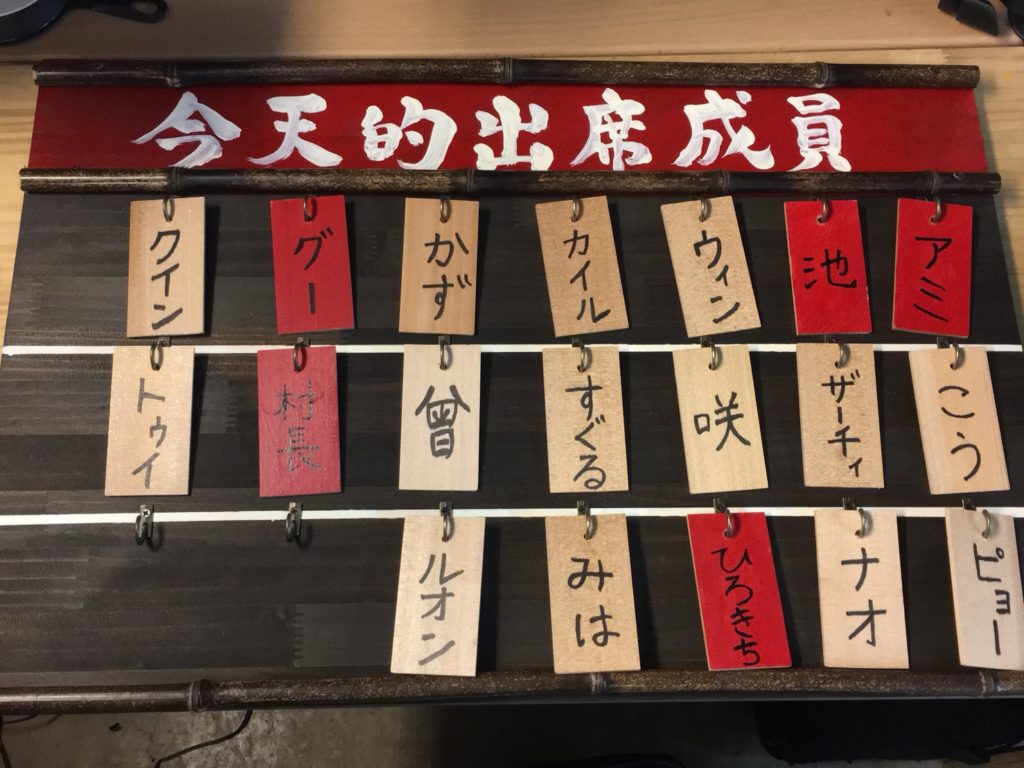 今天的出席成員
クイン グー かず カイル ウィン 池 アミ
トゥイ 村長 曾 すぐる 咲 ザーチィ こう
ルオン みは ひろきち ナオ ピョー